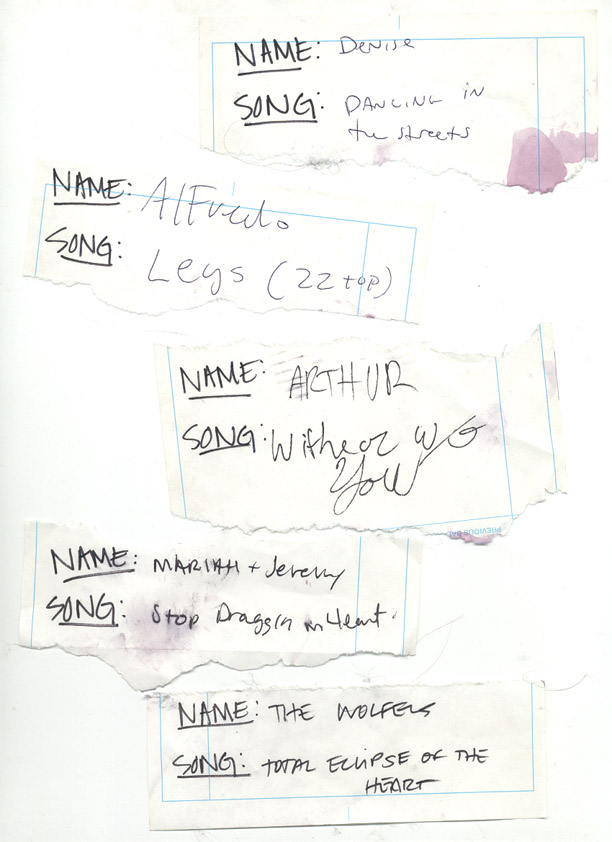 NAME: Denise
SONG: DANCING in
the streets
NAME: Alfredo
SONG:
Legs (ZZ top)
NAME: ARTHUR
SONG: With or w/o
YoU
NAME: MARIAH + Jeremy
SONG: Stop Draggin m Heart
NAME: THE WOLFELS
SONG: TOTAL ECLIPSE OF THE
HEART